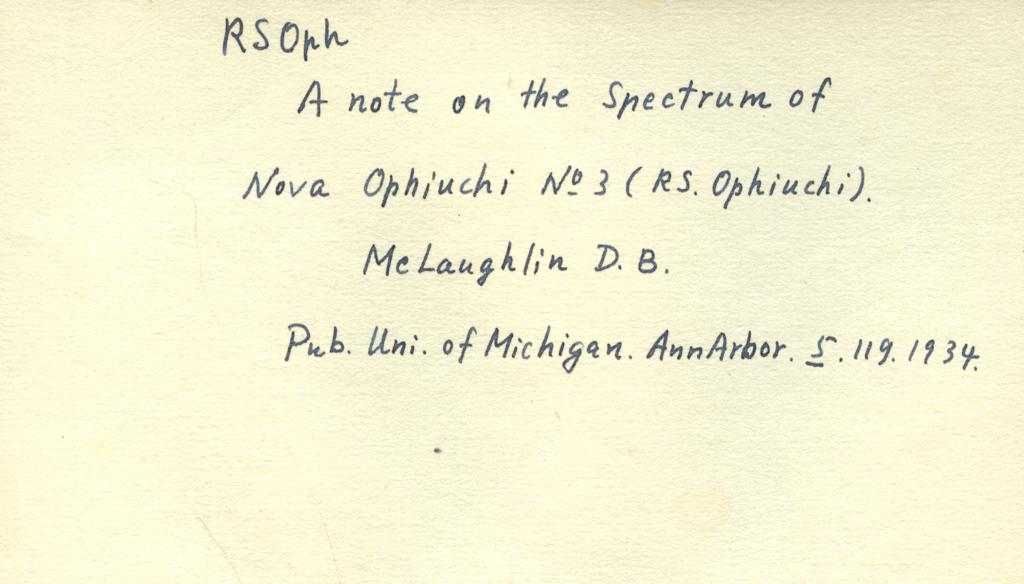 RS Oph
A note on the Spectrum of
Nova Ophiuchi Nº 3 ( RS. Ophiuchi).
McLaughlin D. B.
Pub. Uni. of Michigan. Ann Arbor. 5. 119. 1934.